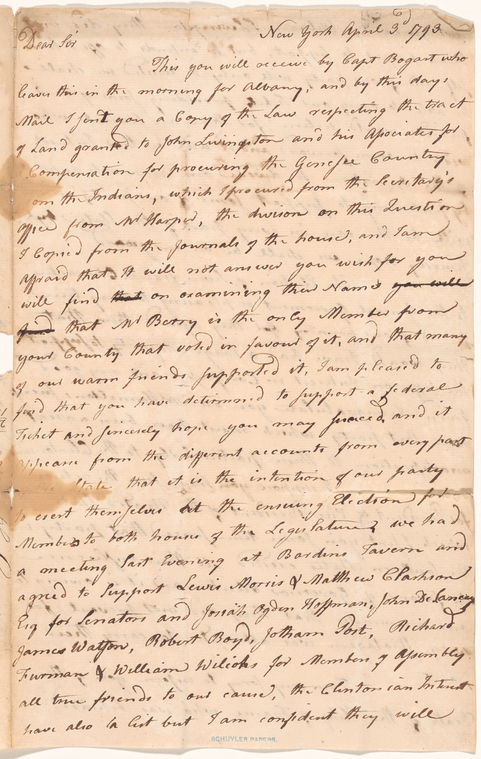 New York April 3d 1793
Dear Sir
This you will receive by Capt Bogart who
leaves this in the morning for Albany, and by this days
Mail I sent you a Copy of the Law respecting the tract
of Land granted to John Livingston and his Associates for
Compensation for procuring the Genesee Country
om the Indians, which I procured from the Secretary's
office from Mr Harper, the divison on this Question
I Copied from the Journals of the house, and I am
affraid that it will not answer you wish for you
will find that on examining their Names you will
find that Mr Berry is the only Member from
your County that voted in favour of it, and that many
of our warm friends supported it, I am pleased to
find that you have determined to support a federal
Ticket and sincerely hope you may succeed and it
appears from the different accounts from every part
State that it is the intention of our party
to exert themselves at the ensuing Election for
Members to both houses of the Legislature, we had
a meeting last Evening at Bardins Tavern and
agreed to Support Lewis Morris & Matthew Clarkson
Esq for Senators and Josiah Ogden Hoffman, John DeLancey
James Watson, Robert Boyd, Jotham Post, Richard
Furman & William Wilcoks for Members of Assembly
all true friends to our cause, the Clintonian Interest
have also a list but I am confident they will
SCHUYLER PAPERS.